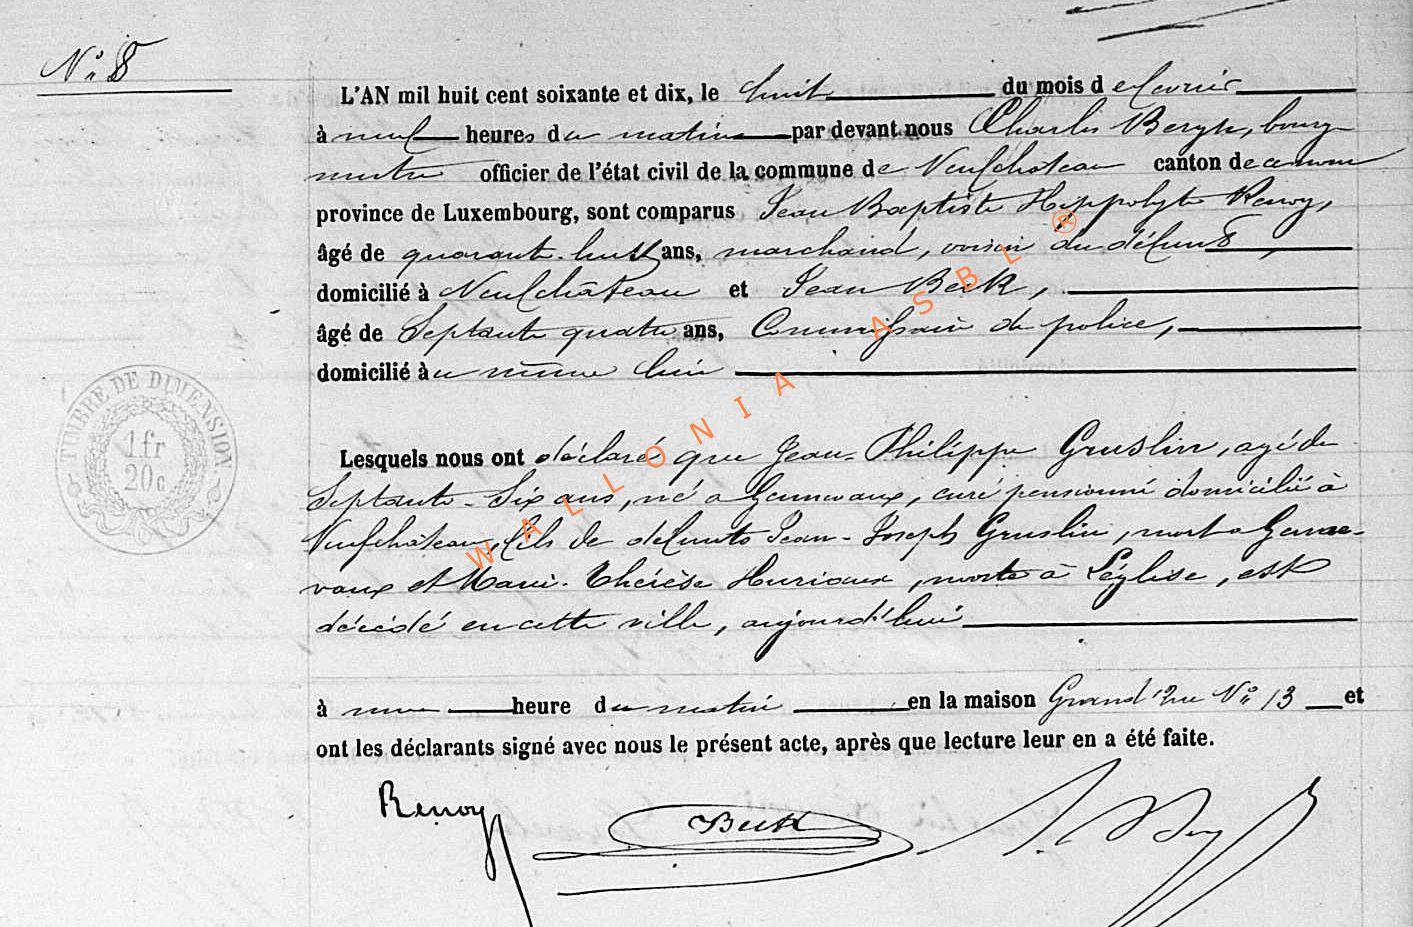 N° 8
L'AN mil huit cent soixante et dix, le huit du mois de février
à neuf heures du matin par devant nous Charles Bergh, bourg-
mestre officier de l'état civil de la commune de Neufchateau canton de ce nom
province de Luxembourg, sont comparus Jean Baptiste Hippolyte Renoy,
âgé de quarante-huit ans, marchand, voisin du défunt,
domicilié à Neufchâteau et Jean Beck,
âgé de Septante quatre ans, Commissaire de police,
domicilié au même lieu
TIMBRE DE DIMENSION
1 fr
20 c
Lesquels nous ont déclaré que Jean-Philippe Gruslin, agé de
Septante-Six ans, né a Gennevaux, curé pensionné domicilié à
Neufchateau, fils de défunts Jean-Joseph Gruslin, mort a Genne-
vaux et Marie-Thérèse Huriaux, morte à Léglise, est
décédé en cette ville, aujourd'hui
à une heure du matin en la maison Grand'Rue N° 13 et
ont les déclarants signé avec nous le présent acte, après que lecture leur en a été faite.
Renoy Beck
WALLONIA ASBL ®